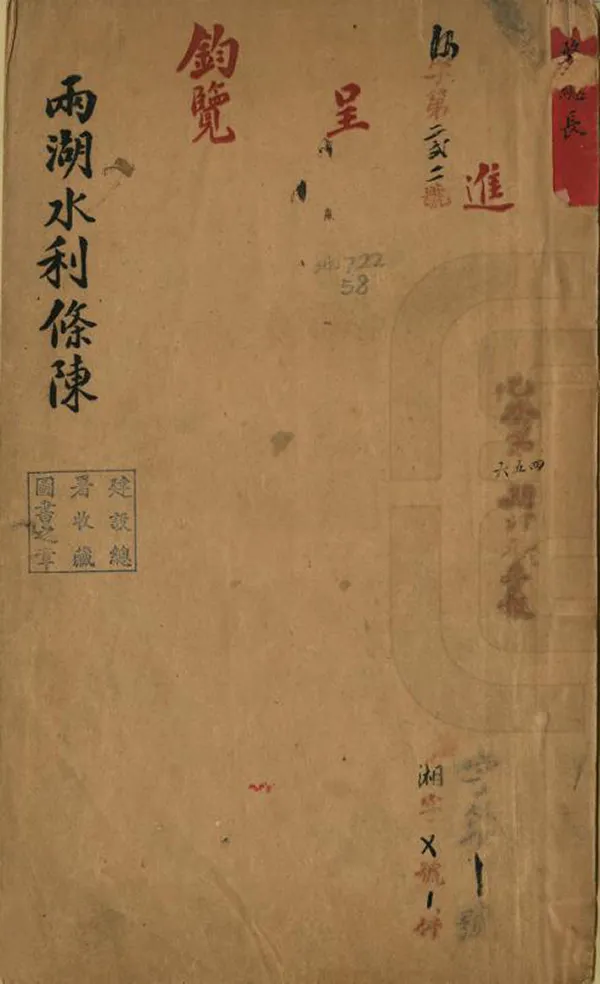 進
字第二弍二號
呈
鈞覽
兩湖水利條陳
722
58
四五六
建設總
署收藏
圖書之章
字第1號
湘字X號1件